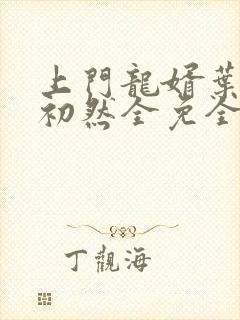 上門龍婿葉
初然全免全
丁觀海